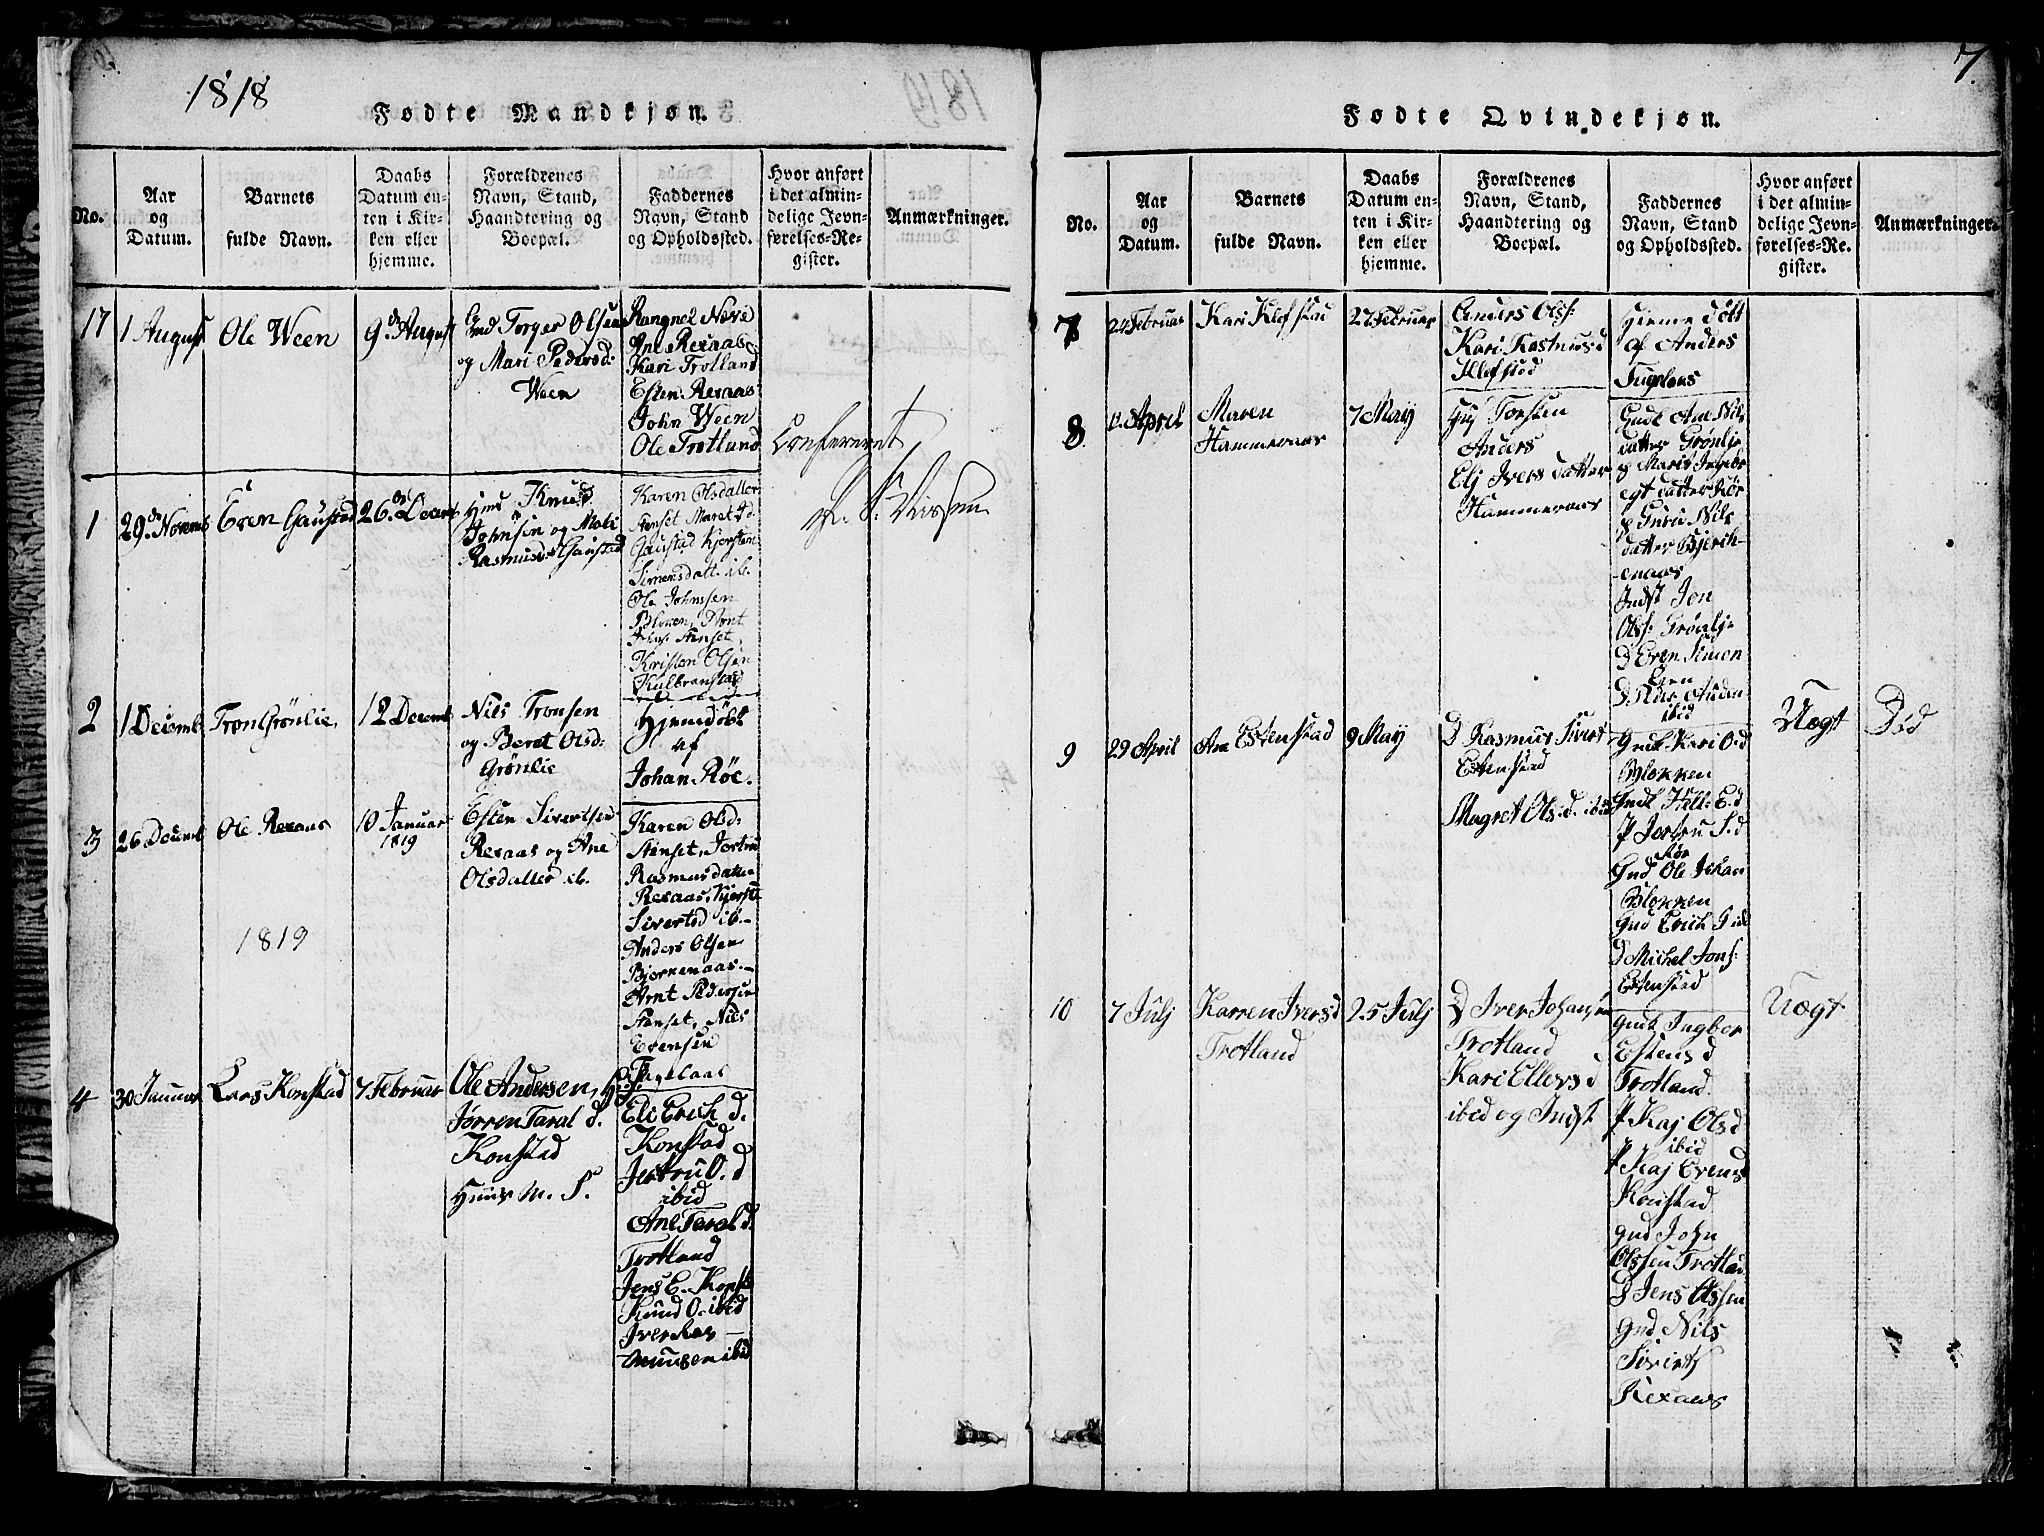 1818
Fødte Mandkjøn.
No.
Aar
og
Datum.
Barnets
fulde Navn.
Daabs
Datum en-
ten i Kir-
ken eller
hjemme.
Forældrenes
Navn, Stand,
Haandtering og
Boepæl.
Faddernes
Navn, Stand
og Opholdssted.
Hvor anført
i det almin-
delige Jevn-
førelses-Re-
gister.
Anmærkninger.
17
1 August
Ole Ween
9de August
Torger Olsen
og Mari Pedersd:
Ween
Rangnel Neve
Ane Rexaas
Kari Trotland
Esten Rexaas
John Ween
Ole Trotland
Conferert
1
29de Novemb
Even Gaustad
26de Decem
Knud
Johnsen og Mali
Rasmusd Gaustad
Karen Olsdatter
Stenset Maret
Gaustad Kjersten
Simensdatt. ib.
Ole Johnsen
Blokken, Arnt
Stenset,
Kristen Olsen
2
1 Decemb
Tron Grønlie
12 Decemb
Nils Tronsen
og Beret Olsd:
Grønlie
Hjemdøbt
af
Johan Røe.
3
26 Decemb
Ole Rexaas
10 Januar
1819
Esten Sivertsen
Rexaas og Ane
Olsdatter ib.
Karen Olsd:
Stenset, Jortru
Rasmusdatter
Rexaas, Kjersti
Sivertsd ib.
Anders Olsen
Bjorkenaas.
Arnt Pedersen
Stenset, Nils
Evensen
1819
4
30 Januar
Lars Konstad
7 Februar
Ole Andersen,
Jørren Taral d.
Konstad
Huus M. S.
Eli Erich d.
Konstad
Jortru O. d
ibid
Ane Taral d.
Trotland
Jens E. Konst
Knud O. ibid
Iver Ras
musen ibid
7
Fødte Qvindekjøn.
No.
Aar
og
Datum.
Barnets
fulde Navn.
Daabs
Datum en-
ten i Kir-
ken eller
hjemme.
Forældrenes
Navn, Stand,
Haandtering og
Boepæl.
Faddernes
Navn, Stand
og Opholdssted.
Hvor anført
i det almin-
delige Jevn-
førelses-Re-
gister.
Anmærkninger.
7
24 Februar
Kari Klefstad
27 Februar
Anders Ols:
Kari Rasmus d
Klefstad
Hieme døbt
af Anders
Fuglaas
8
April
Maren
Hammeraas
7 May
Torsten
Anders
Eli Ivers datter
Hammeraas
Ane Nils
datter Grønli
Marit Ingebr
egt datter Rør
Guru Nils
datter Bjerk-
enaas
Jon
Ols: Grønli
Even Simen
ibid
9
29 April
Ane Estenstad
9 May
D Rasmus Sivert
Estenstad
Magret Ols. d. ibid
Gmd Kari O. d
Blokken
P Jortru S. d
Rør
Gmd Ole Johan
Blokken
Gmd Erich
D Michel Jons:
Estenstad
Uægt
Død
10
7 Julj
Karren Ivers d
Trotland
25 Julj
D Iver Johansen
Trotland
Kari Ellevs d
ibid og Indst
Gmd Ingbor
Estens d
Trotland
P Kaj Ols d
ibid
P Kaj Evens
Konstad
Gmd John
Olssen Trotlan
D Jens Olssen
Gmd Nils
Sivirts
Rexaas
Uægt